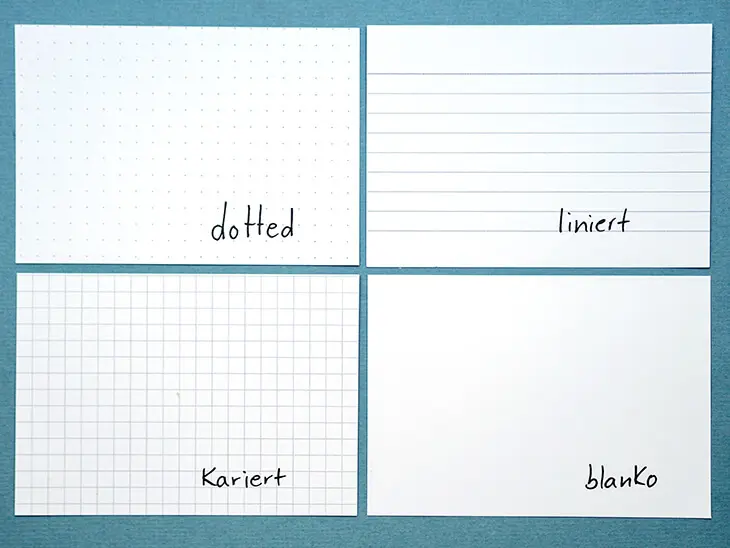 dotted
liniert
Kariert
blanko